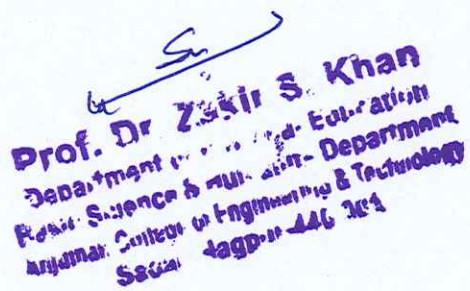 Prof. Dr Zakir S. Khan
Department Education
Science & Department
Anjuman College of Engineering & Technology
Sadar Nagpur 440 001